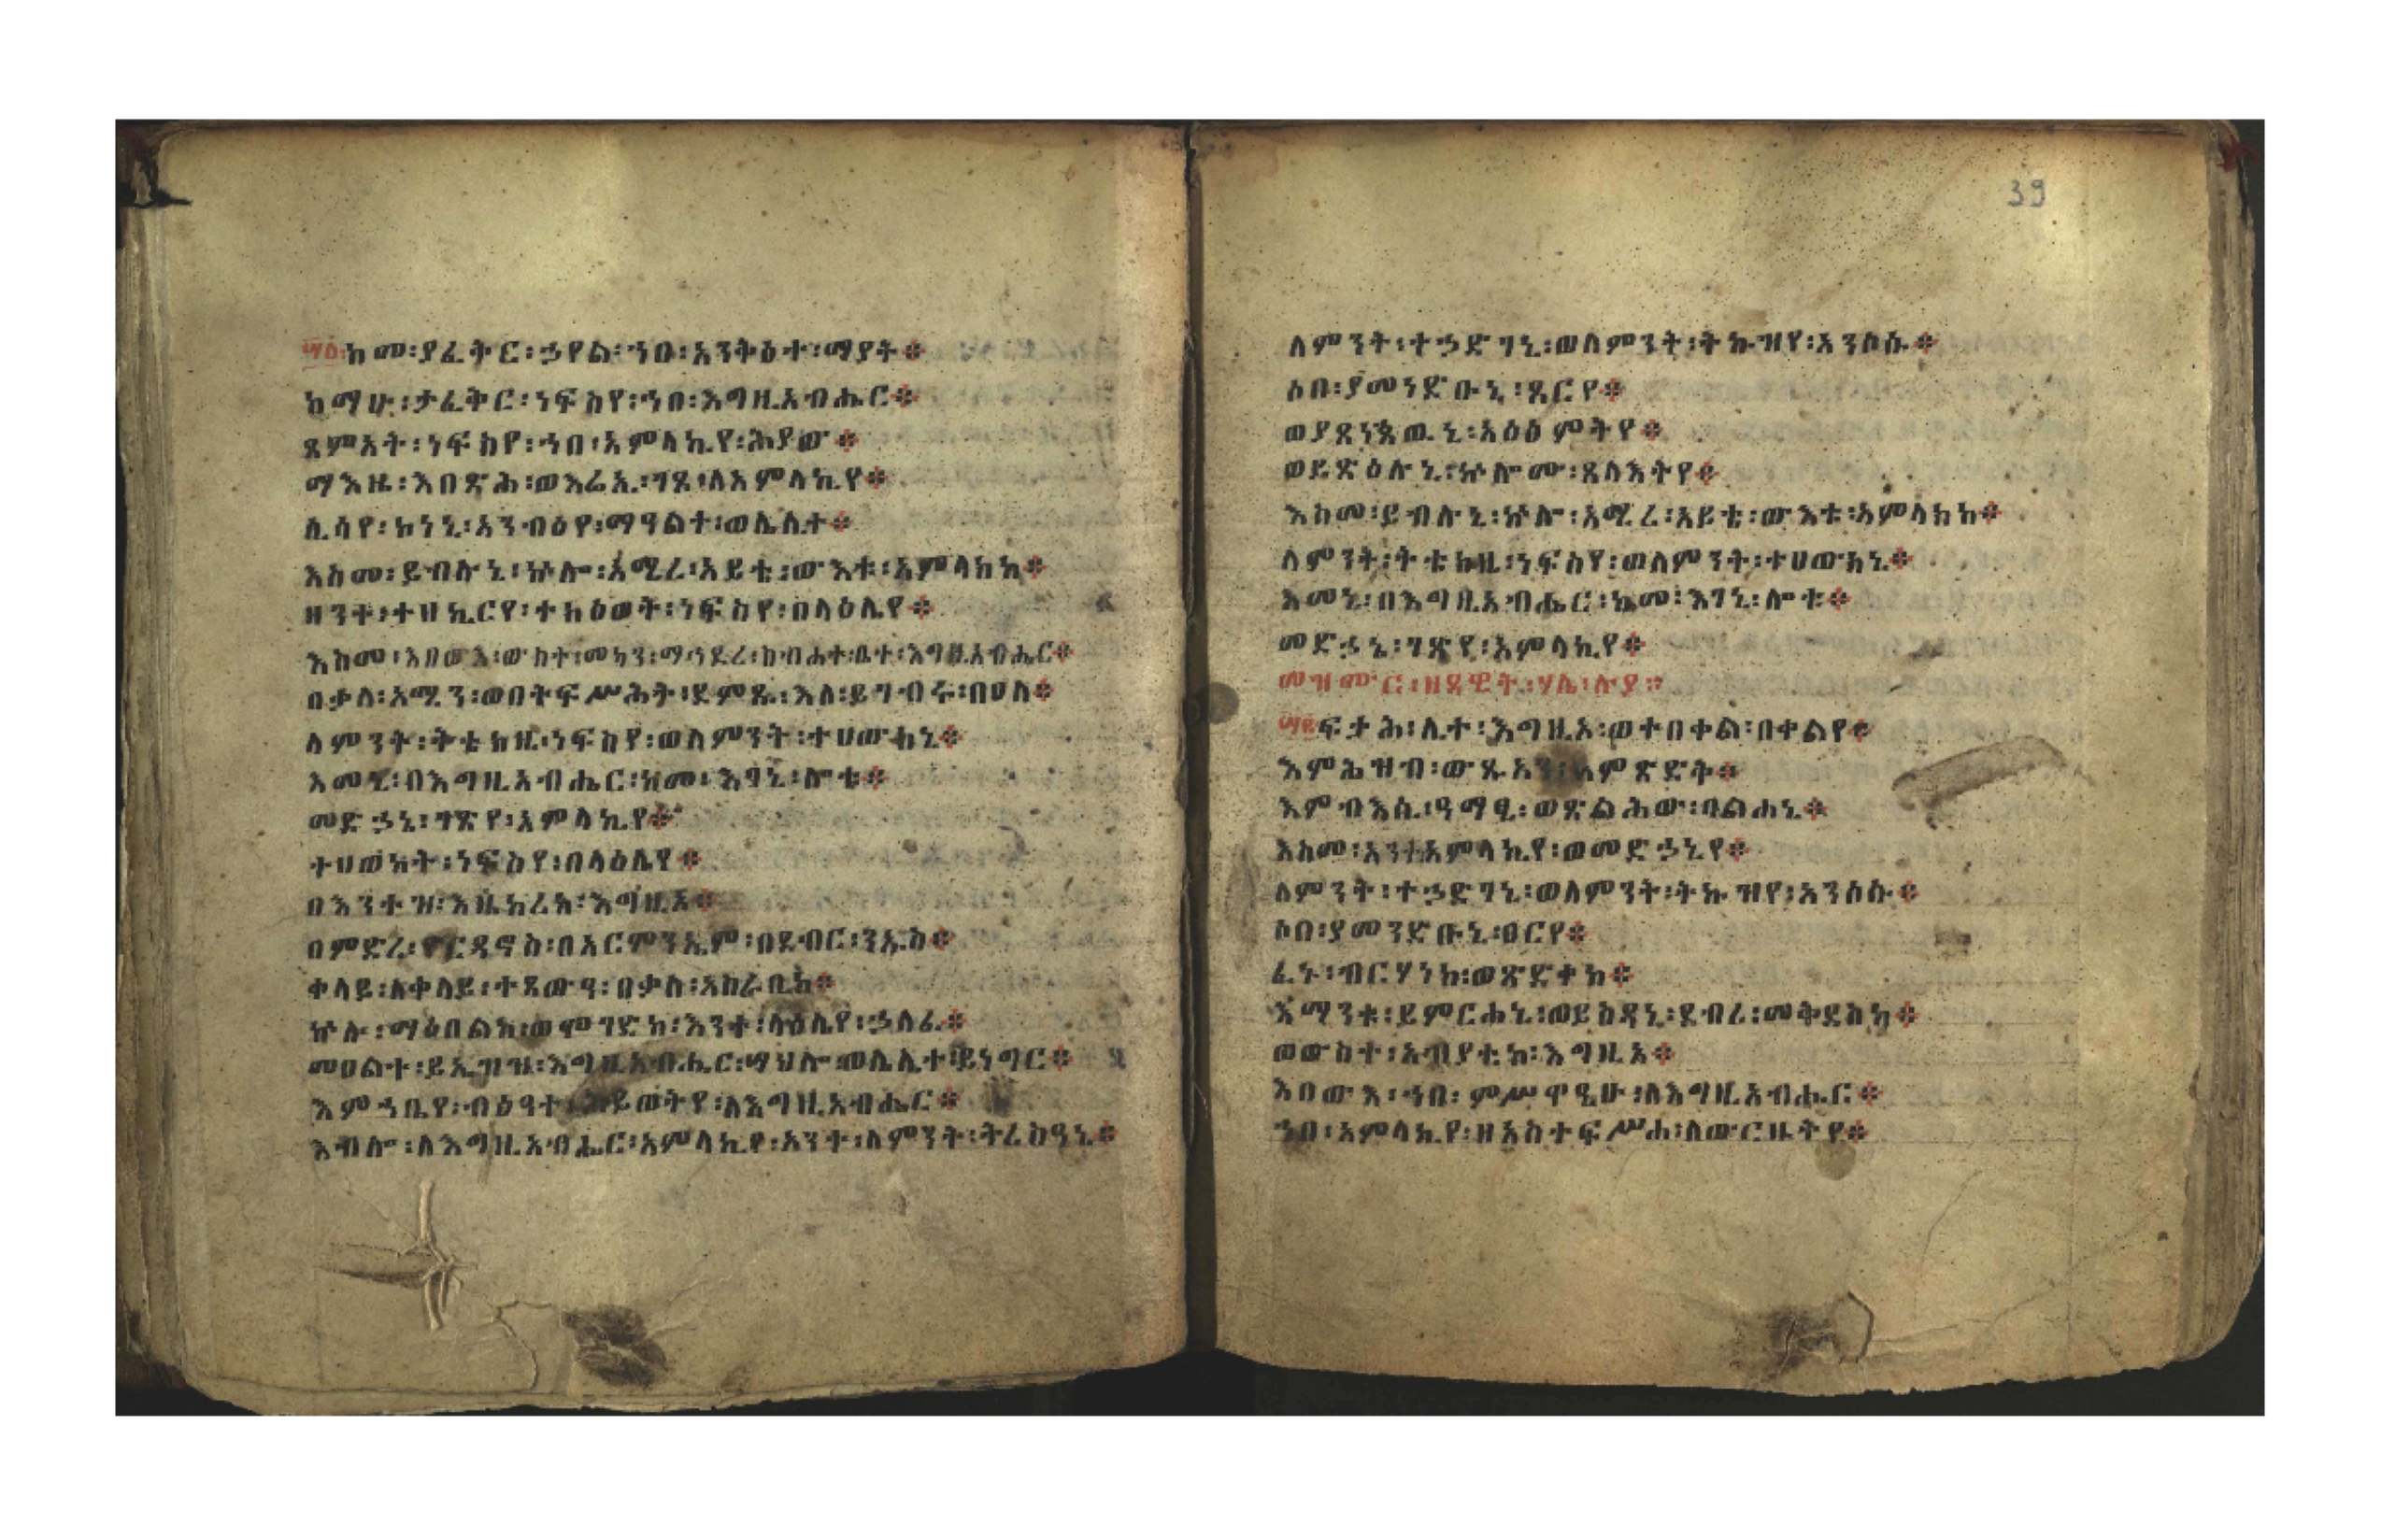 ፵፩ከመ፡ያፈቅር፡ኃየል፡ኀበ፡አንቅዕተ፡ማያት፨
ከማሁ፡ታፈቅር፡ነፍስየ፡ኀበ፡እግዚአብሔር፨
ጸምአት፡ነፍስየ፡ኀበ፡አምላኪየ፡ሕያው፨
ማእዜ፡እበጽሕ፡ወእሬኢ፡ገጸ፡ለአምላኪየ፨
ሲሳየ፡ከነኒ፡አንብዕየ፡ማዓልተ፡ወሌሊተ፨
እስመ፡ይብሉኒ፡ኵሎ፡አሚረ፡አይቴ፡ውእቱ፡አምላክከ፨
ዘንተ፡ተዘኪርየ፡ተክዕወት፡ነፍስየ፡በላዕሌየ፨
እስመ፡እበውእ፡ውስተ፡መካነ፡ማኅደረ፡ስብሐተ፡ቤተ፡እግዚአብሔር፨
በቃለ፡አሚን፡ወበትፍሥሕት፡ደምፁ፡እለ፡ይገብሩ፡በዐለ፨
ለምንት፡ትቴክዚ፡ነፍስየ፡ወለምንት፡ተሀውክኒ፨
እመኒ፡በእግዚአብሔር፡ከመ፡እገኒ፡ሎቱ፨
መድኃኒ፡ገጽየ፡አምላኪየ፨
ተሀውከት፡ነፍስየ፡በላዕሌየ፨
በእንተዝ፡እዜከረከ፡እግዚአ፨
በምድረ፡ዮርዳኖስ፡በአርሞንኤም፡በደብር፡ንኡስ፨
ቀላይ፡ለቀላይ፡ተጸውዓ፡በቃለ፡አስራቢከ፨
ኵሉ፡ማዕበልከ፡ወሞገድከ፡እንተ፡ላዕሌየ፡ኃለፈ፨
መዐልተ፡ይኤዝዝ፡እግዚአብሔር፡ሣህሎ፡ወሌሊተ፡ይነግር፨
እምኀቤየ፡ብፅዓተ፡ሕይወትየ፡ለእግዚአብሔር፨
እብሎ፡ለእግዚአብሔር፡አምላኪየ፡አንተ፡ለምንት፡ትረስዓኒ፨
39
ለምንት፡ተኃድገኒ፡ወለምንት፡ትኩዝየ፡አንሶሱ፨
ሶበ፡ያመነድቡኒ፡ጸርየ፨
ወያጸነጽዉኒ፡አዕፅምትየ፨
ወይጽዕሉኒ፡ኵሎሙ፡ጸላእትየ፨
እስመ፡ይብሉኒ፡ኵሎ፡አሚረ፡አይቴ፡ውእቱ፡አምላክከ፨
ለምንት፡ትቴክዚ፡ነፍስየ፡ወለምንት፡ተሀውክኒ፨
እመኒ፡በእግዚአብሔር፡ከመ፡እገኒ፡ሎቱ፨
መድኃኒ፡ገጽየ፡አምላኪየ፨
መዝሙር፡ዘዳዊት፡ሃሌ፡ሉያ፨
፵፪ፍታሕ፡ሊተ፡እግዚኦ፡ወተበቀል፡በቀልየ፨
እምሕዝብ፡ውፁአን፡እምጽድቅ፨
እምብእሲ፡ዓማፂ፡ወጽልሕው፡ባልሐኒ፨
እስመ፡አንተ፡አምላኪየ፡ወመድኃኒየ፨
ለምንት፡ተኃድገኒ፡ወለምንት፡ትኩዝየ፡አንሶሱ፨
ሶበ፡ያመንድቡኒ፡ፀርየ፨
ፈኑ፡ብርሃነከ፡ወጽድቀከ፨
እማንቱ፡ይምርሐኒ፡ወይስዳኒ፡ደብረ፡መቅደስከ፨
ወውስተ፡አብያቲከ፡እግዚኦ፨
እበውእ፡ኀበ፡ምሥዋዒሁ፡ለእግዚአብሔር፨
ኀበ፡አምላኪየ፡ዘአስተፍሥሐ፡ለውርዙትየ፨